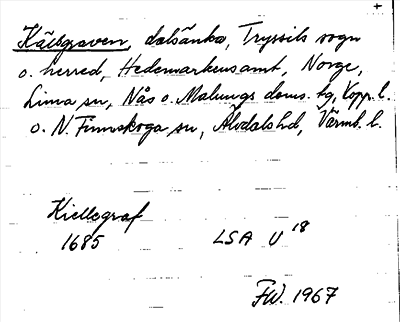 +
Kälsgraven, dalsänka, Tryssils sogn
o. herred, Hedemarkens amt, Norge,
Lima sn, Nås o. Malungs doms. tg, Kopp. l.
o. N. Finnskoga sn, Älvdals hd, Värml. l.
Kiellegraf
1685
LSA U 18
FW. 1967